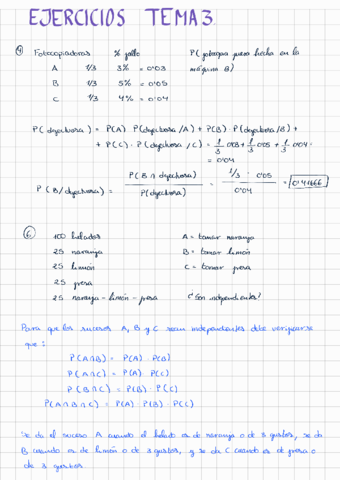 EJERCICIOS TEMA 3
④ Fotocopiadoras % fallo P( fotocopia fuera hecha en la
A 1/3 3% = 0'03 máquina B)
B 1/3 5% = 0'05
C 1/3 4% = 0'04
P( defectuosa ) = P(A) · P(defectuosa /A) + P(B) · P(defectuosa/B) +
+ P(C) · P(defectuosa /C) = 1/3 · 0'03 + 1/3 0'05 + 1/3 0'04 =
= 0'04
P ( B / defectuosa ) = P(B ∩ defectuosa) / P(defectuosa) = 1/3 · 0'05 / 0'04 = 0'41666
⑥ 100 helados A = tomar naranja
25 naranja B = tomar limón
25 limón C = tomar fresa
25 fresa
25 naranja - limón - fresa ¿Son independientes?
Para que los sucesos A, B y C sean independientes debe verificarse
que :
P(A∩B) = P(A) · P(B)
P(A∩C) = P(A) · P(C)
P(B∩C) = P(B) · P(C)
P(A∩B∩C) = P(A) · P(B) · P(C)
Se da el suceso A cuando el helado es de naranja o de 3 gustos, se da
B cuando es de limón o de 3 gustos, y se da C cuando es de fresa o
de 3 gustos